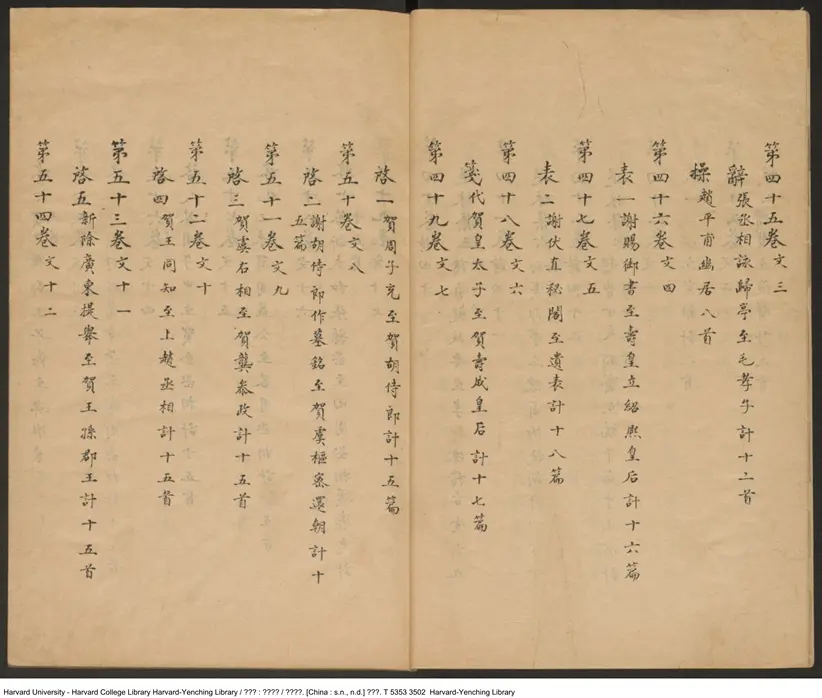 第四十五卷文三
辭張丞相詠歸亭至毛孝子計十二首
操趙平甫幽居八首
第四十六卷文四
表一謝賜御書至壽皇立紹熙皇后計十六篇
第四十七卷文五
表二謝伏直秘閣至遺表計十八篇
第四十八卷文六
箋代賀皇太子至賀壽成皇后計十七篇
第四十九卷文七
啓一賀周子充至賀胡侍郎計十五篇
第五十卷文八
啓二謝胡侍郎作墓銘至賀虞樞密還朝計十
五篇
第五十一卷文九
啓三賀虞右相至賀龔叅政計十五首
第五十二卷文十
啓四賀王同知至上趙丞相計十五首
第五十三卷文十一
啓五新除廣東提舉至賀王孫郡王計十五首
第五十四卷文十二
Harvard University - Harvard College Library Harvard-Yenching Library / ??? : ???? / ????. [China : s.n., n.d.] ???. T 5353 3502 Harvard-Yenching Library